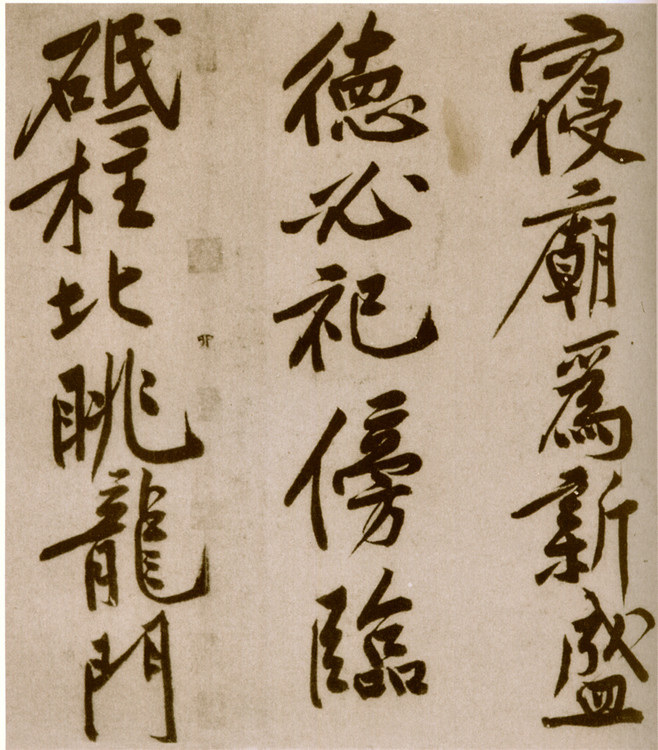 寝廟為新盛
德必祀傍臨
砥柱北眺龍門